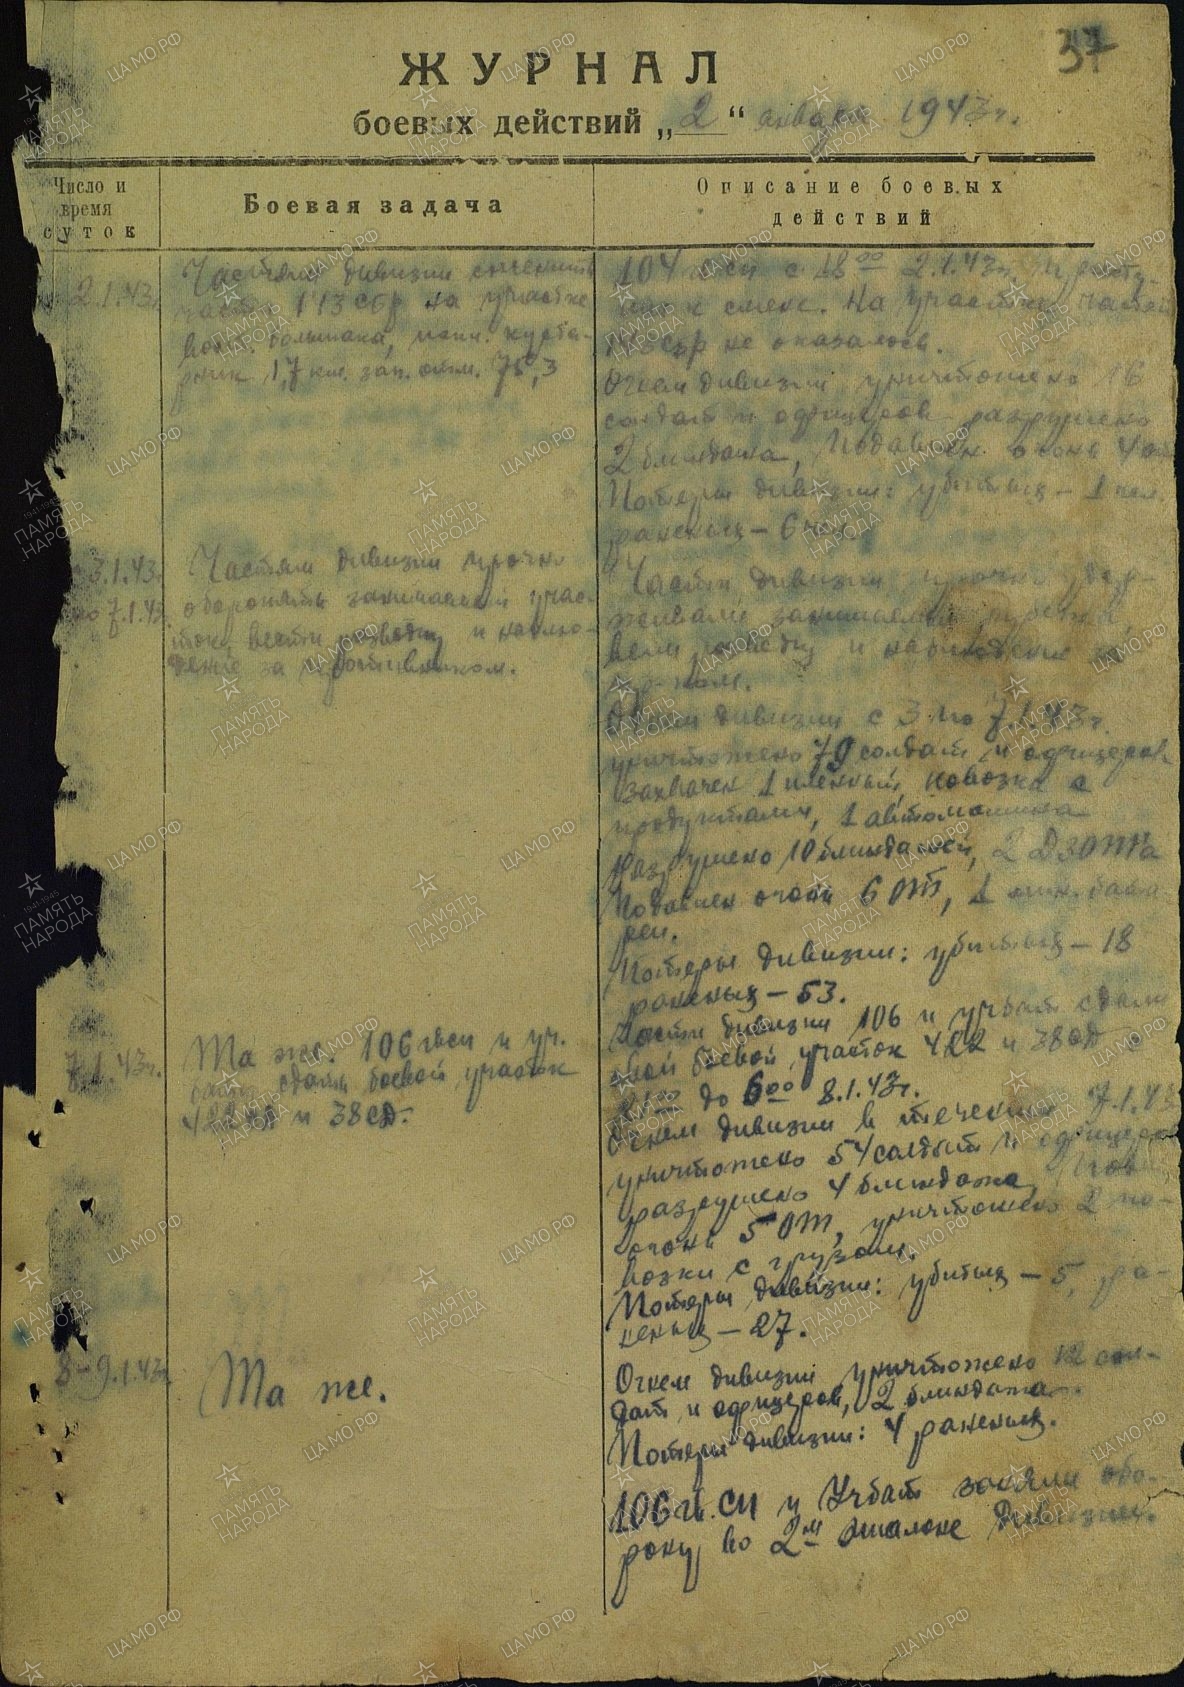 37
ЖУРНАЛ
боевых действий „2“ января 1943 г.
Число и
время
суток
Боевая задача
Описание боевых
действий
2.1.43г.
Частям дивизии сменить
части 143 сбр на участке
больш. кустар-
ник 1,7 км. зап. отм. 75,3
104 гвсп с 18 00 2.1.43г. присту-
пил к смене. На участке частей
143 сбр не оказалось.
Огнем дивизии уничтожено 16
солдат и офицеров разрушено
2 блиндажа, Подавлен огонь 4 от
Потери дивизии: убитых – 1 чел.
раненых – 6 чел.
3.1.43г.
по 7.1.43г.
Частям дивизии прочно
оборонять занимаемый учас-
ток, вести разведку и наблю-
дение за противником.
Части дивизии прочно удер-
живали занимаемый рубеж,
вели разведку и наблюдение за
пр-ком.
Огнем дивизии с 3 по 7.1.43г.
уничтожено 79 солдат и офицеров
захвачен 1 пленный, повозка с
продуктами, 1 автомашина
Разрушено 10 блиндажей, 2 ДЗОТ'а
Подавлен огонь 6 ОТ, 1 мин. бата
реи.
Потери дивизии: убитых – 18
раненых – 53.
7.1.43г.
Та же. 106 гвсп и уч.
бат. сдать боевой участок
422 сд и 38 сд.
Части дивизии 106 и учбат сдали
свой боевой участок 422 и 38 сд с
до 6 00 8.1.43г.
Огнем дивизии в течении 7.1.43
уничтожено 54 солдат и офицеров
разрушено 4 блиндажа,
огонь 5 ОТ, уничтожено 2 по-
возки с грузом.
Потери дивизии: убитых – 5, ра-
неных – 27.
8–9.1.43г.
Та же.
Огнем дивизии уничтожено 12 сол-
дат и офицеров, 2 блиндажа.
Потери дивизии: 4 раненых.
106 гв.сп и Учбат заняли обо-
рону во 2м эшалоне дивизии.
ПАМЯТЬ НАРОДА
ЦАМО.РФ